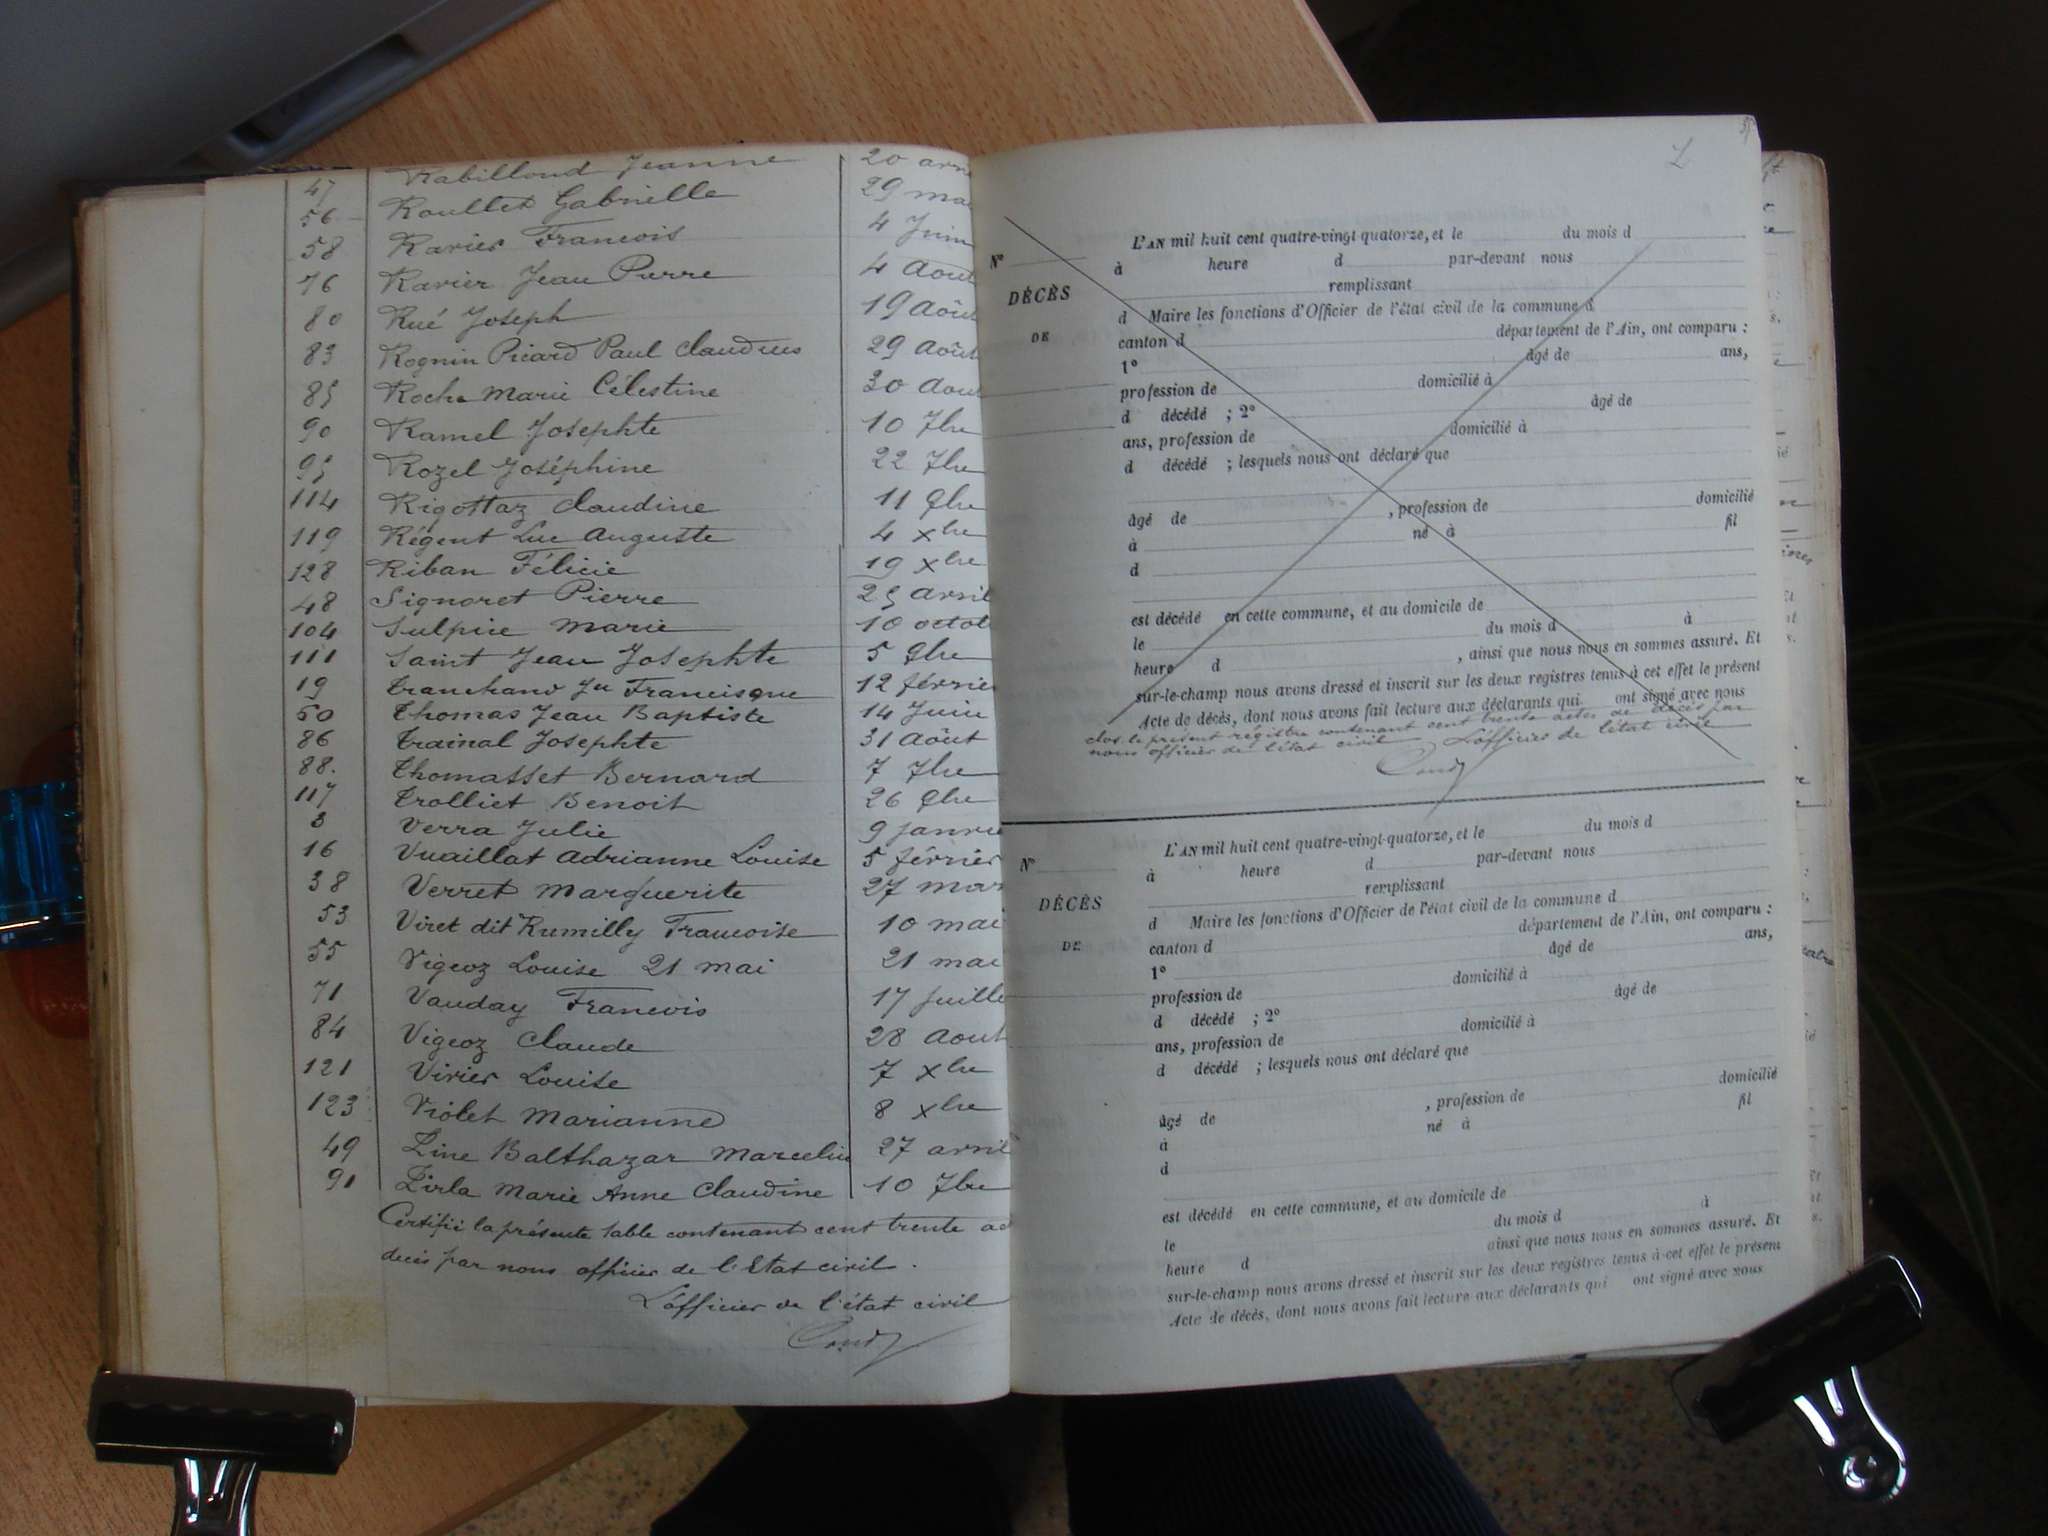 47 Rabilloud Jeanne 20 avri
56 Roullet Gabrielle 29 mai
58 Ravier Francois 4 Juin
76 Ravier Jean Pierre 4 Aout
80 Rué Joseph 19 Aôut
83 Rognin Picard Paul Claudius 29 Août
85 Roche Marie Célestine 30 Aout
90 Ramel Josephte 10 7bre
95 Rozel Joséphine 22 7bre
114 Rigottaz Claudine 11 9bre
119 Régent Luc Auguste 4 xbre
128 Riban Félicie 19 xbre
48 Signoret Pierre 25 avril
104 Sulpice Marie 10 octob
111 Saint Jean Josephte 5 9bre
19 Tranchand Jn Francisque 12 février
50 Thomas Jean Baptiste 14 Juin
86 Trainal Josephte 31 Aôut
88. Thomasset Bernard 7 7bre
117 Trolliet Benoit 26 9bre
3 Verra Julie 9 janvie
16 Vuaillat Adrianne Louise 5 février
38 Verret Marguerite 27 mar
53 Viret dit Rumilly Francoise 10 mai
55 Vigeoz Louise 21 mai 21 mai
71 Vauday Francois 17 juille
84 Vigeoz Claude 28 Aout
121 Virier Louise 7 xbre
123 Violet Marianne 8 xbre
49 Zine Balthazar Marcelin 27 avril
91 Zirla Marie Anne Claudine 10 7bre
Certifié la présente table contenant cent trente ac
décès par nous officier de l'Etat civil.
L'officier de l'état civil
N°
DÉCÈS
DE
L'AN mil huit cent quatre-vingt quatorze, et le du mois d
à heure d par-devant nous
remplissant
d Maire les fonctions d'Officier de l'état civil de la commune d
canton d département de l'Ain, ont comparu :
1° âgé de ans,
profession de domicilié à
d décédé ; 2° âgé de
ans, profession de domicilié à
d décédé ; lesquels nous ont déclaré que
âgé de , profession de domicilié
à né à fil
d
est décédé en cette commune, et au domicile de
le du mois d à
heure d , ainsi que nous nous en sommes assuré. Et
sur-le-champ nous avons dressé et inscrit sur les deux registres tenus à cet effet le présent
Acte de décès, dont nous avons fait lecture aux déclarants qui ont signé avec nous
clos le présent régistre contenant cent trente actes de décès par
nous officier de l'état civil L'officier de l'état civil
N°
DÉCÈS
DE
L'AN mil huit cent quatre-vingt-quatorze, et le du mois d
à heure d par-devant nous
remplissant
d Maire les fonctions d'Officier de l'état civil de la commune d
canton d département de l'Ain, ont comparu :
1° âgé de ans,
profession de domicilié à
d décédé ; 2° âgé de
ans, profession de domicilié à
d décédé ; lesquels nous ont déclaré que
âgé de , profession de domicilié
à né à fil
d
est décédé en cette commune, et au domicile de
le du mois d à
heure d ainsi que nous nous en sommes assuré. Et
sur-le-champ nous avons dressé et inscrit sur les deux registres tenus à cet effet le présent
Acte de décès, dont nous avons fait lecture aux déclarants qui ont signé avec nous